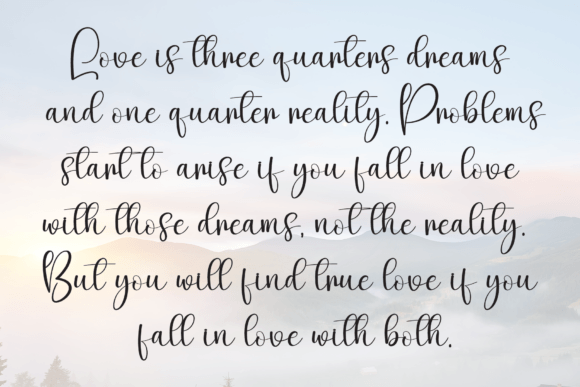 Love is three quarters dreams
and one quarter reality. Problems
start to arise if you fall in love
with those dreams, not the reality.
But you will find true love if you
fall in love with both.